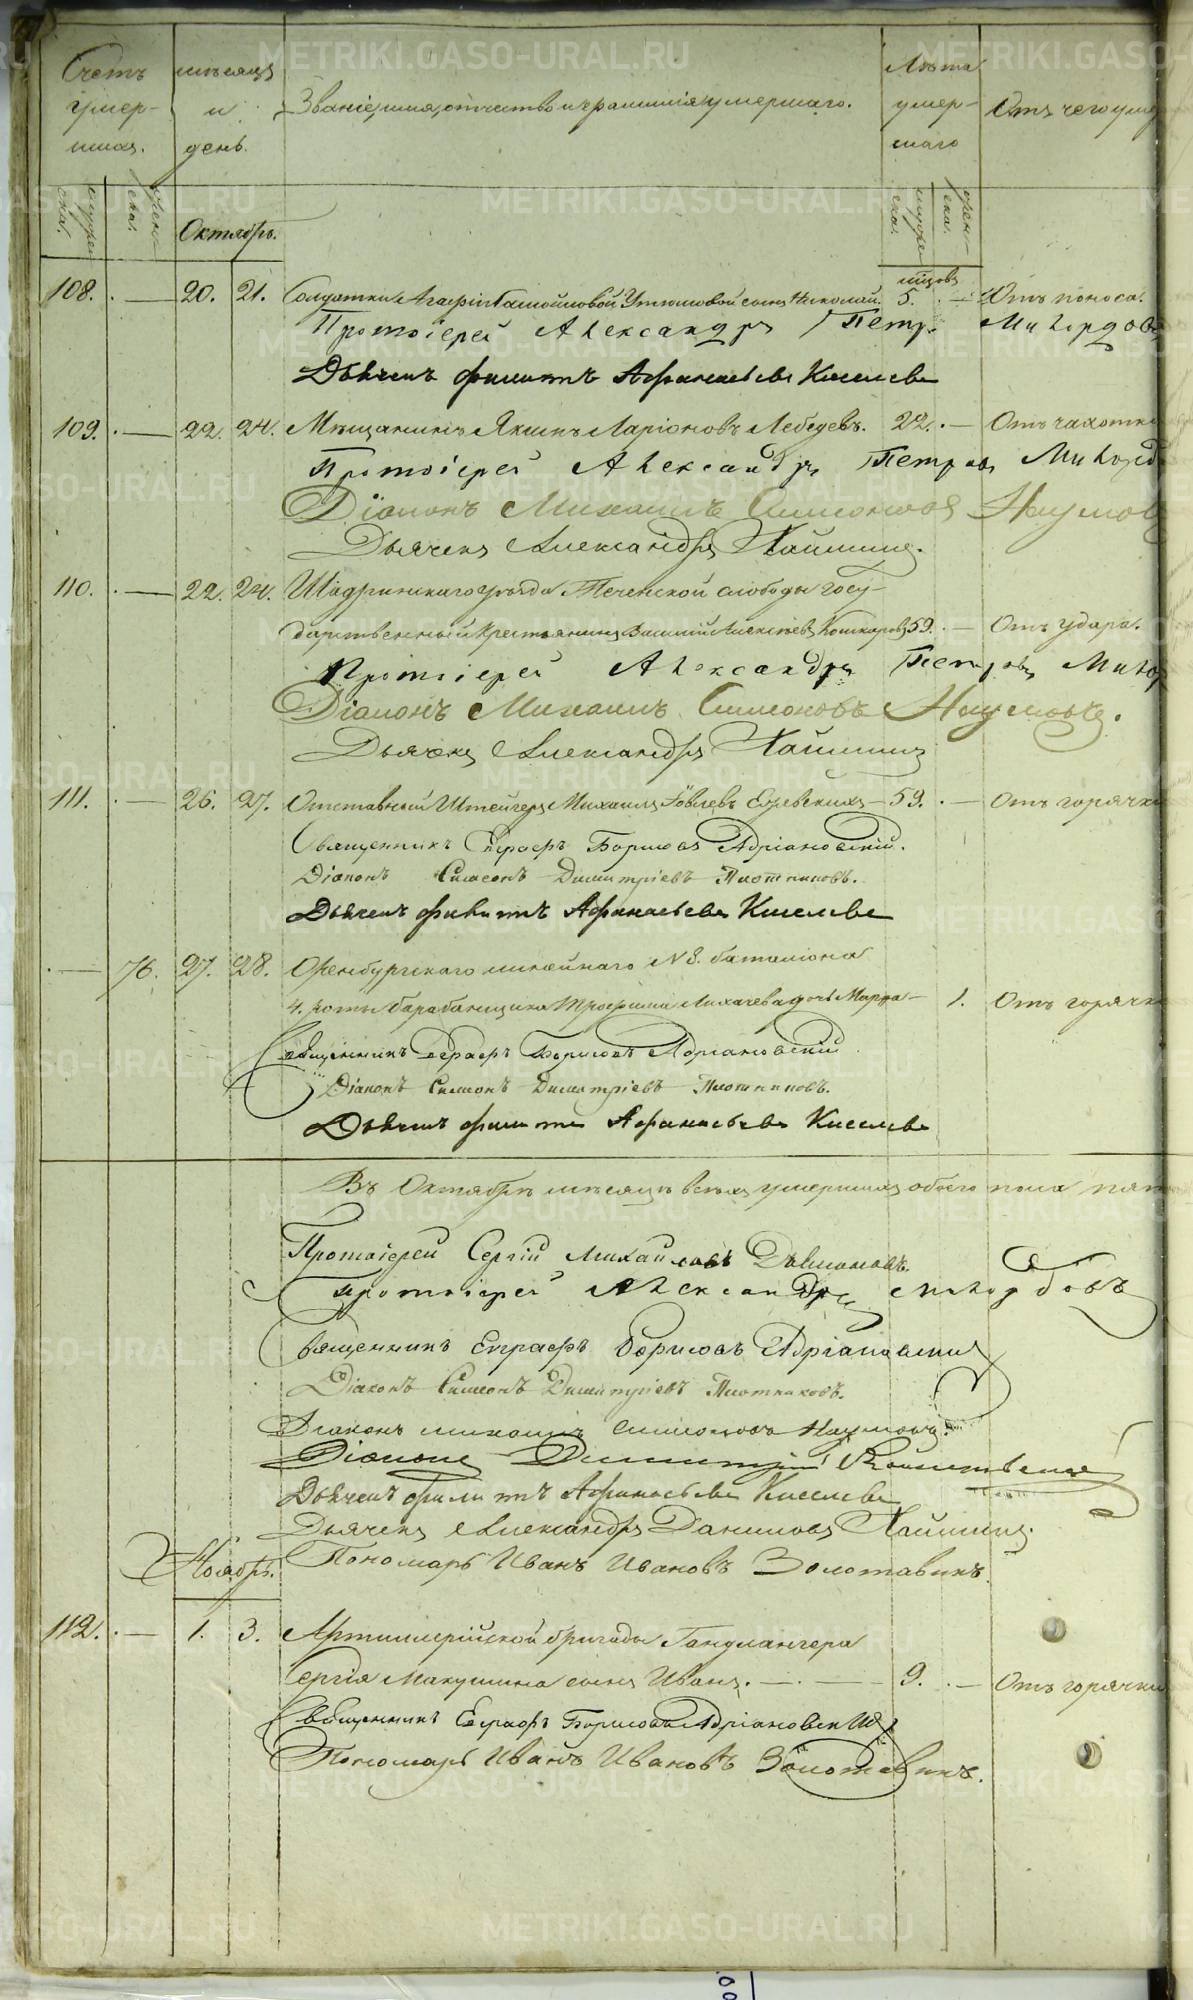 Счетъ умер-шихъ.
мѣсяцъ и день.
Званіе, имя, отчество и фамилія умершаго.
Лѣта умер-шаго
Отъ чего
муже-ска.
жен-ска.
Октябрь.
муже-ска.
жен-ска.
108. · — 20. 21. Солдатки Агафіи сынъ Николай. 5. · — Отъ поноса.
Протоіерей Александръ Петр.
Дьячекъ Филиппъ Афанасьевъ Киселевъ
109. · — 22. 24. Мѣщанинъ Якимъ Ларіоновъ Лебедевъ. 22. · — Отъ чахотки
Протоіерей Александръ Петровъ
Діаконъ Михаилъ Симеоновъ Наумовъ
Дьячекъ Александръ
110. · — 22. 24. Шадринскаго уѣзда Теченской слободы госу-
дарственный крестьянинъ Василій Алексѣевъ 59. · — Отъ удара.
Протоіерей Александръ Петровъ
Діаконъ Михаилъ Симеоновъ Наумовъ.
Дьячекъ Александръ
111. · — 26. 27. Отставный Штейгеръ Михаилъ 59. · — Отъ горячки
Священникъ Евграфъ Борисовъ Адріановскій.
Діаконъ Симеонъ Димитріевъ Плотниковъ.
Дьячекъ Филиппъ Афанасьевъ Киселевъ
· — 76. 27. 28. Оренбургскаго линейнаго № 3. баталіона
4. роты барабанщика Трофима Лихачева дочь Марфа — 1. Отъ горячки
Священникъ Евграфъ Борисовъ Адріановскій
Діаконъ Симеонъ Димитріевъ Плотниковъ.
Дьячекъ Филиппъ Афанасьевъ Киселевъ
Въ Октябрѣ мѣсяцѣ всѣхъ умершихъ обоего пола
Протоіерей Сергій Михайловъ
Протоіерей Александръ
Священникъ Евграфъ Борисовъ Адріановскій
Діаконъ Симеонъ Димитріевъ Плотниковъ.
Діаконъ Михаилъ Симеоновъ Наумовъ.
Діаконъ Димитрій
Дьячекъ Филиппъ Афанасьевъ Киселевъ
Дьячекъ Александръ Даниловъ
Ноябрь.
Пономарь Иванъ Ивановъ Золотавинъ.
112. · — 1. 3. Артиллерійской бригады Гандлангера
Сергія Макушина сынъ Иванъ. — 9. · — Отъ горячки
Священникъ Евграфъ Борисовъ Адріановскій
Пономарь Иванъ Ивановъ Золотавинъ.
METRIKI.GASO-URAL.RU